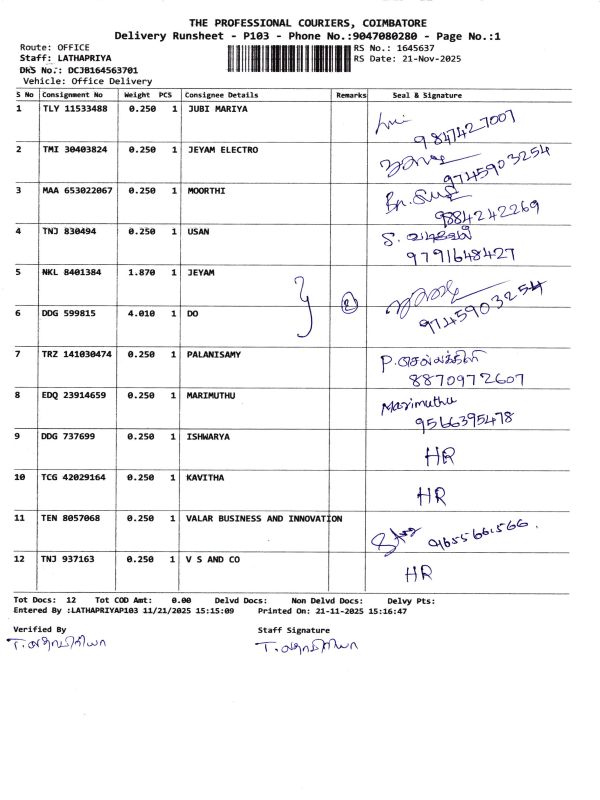 THE PROFESSIONAL COURIERS, COIMBATORE
Delivery Runsheet - P103 - Phone No.:9047080280 - Page No.:1
Route: OFFICE
RS No.: 1645637
Staff: LATHAPRIYA
RS Date: 21-Nov-2025
DRS No.: DCJB164563701
Vehicle: Office Delivery
S No Consignment No Weight PCS Consignee Details Remarks Seal & Signature
1 TLY 11533488 0.250 1 JUBI MARIYA 9847427007
2 TMI 30403824 0.250 1 JEYAM ELECTRO 9745903254
3 MAA 653022067 0.250 1 MOORTHI 9884242269
4 TNJ 830494 0.250 1 USAN 9791648427
5 NKL 8401384 1.870 1 JEYAM
6 DDG 599815 4.010 1 DO } 2 9745903254
7 TRZ 141030474 0.250 1 PALANISAMY P.செல்வக்கிளி 8870972607
8 EDQ 23914659 0.250 1 MARIMUTHU Marimuthu 9566395478
9 DDG 737699 0.250 1 ISHWARYA HR
10 TCG 42029164 0.250 1 KAVITHA HR
11 TEN 8057068 0.250 1 VALAR BUSINESS AND INNOVATION 9655661566.
12 TNJ 937163 0.250 1 V S AND CO HR
Tot Docs: 12 Tot COD Amt: 0.00 Delvd Docs: Non Delvd Docs: Delvy Pts:
Entered By :LATHAPRIYAP103 11/21/2025 15:15:09 Printed On: 21-11-2025 15:16:47
Verified By Staff Signature